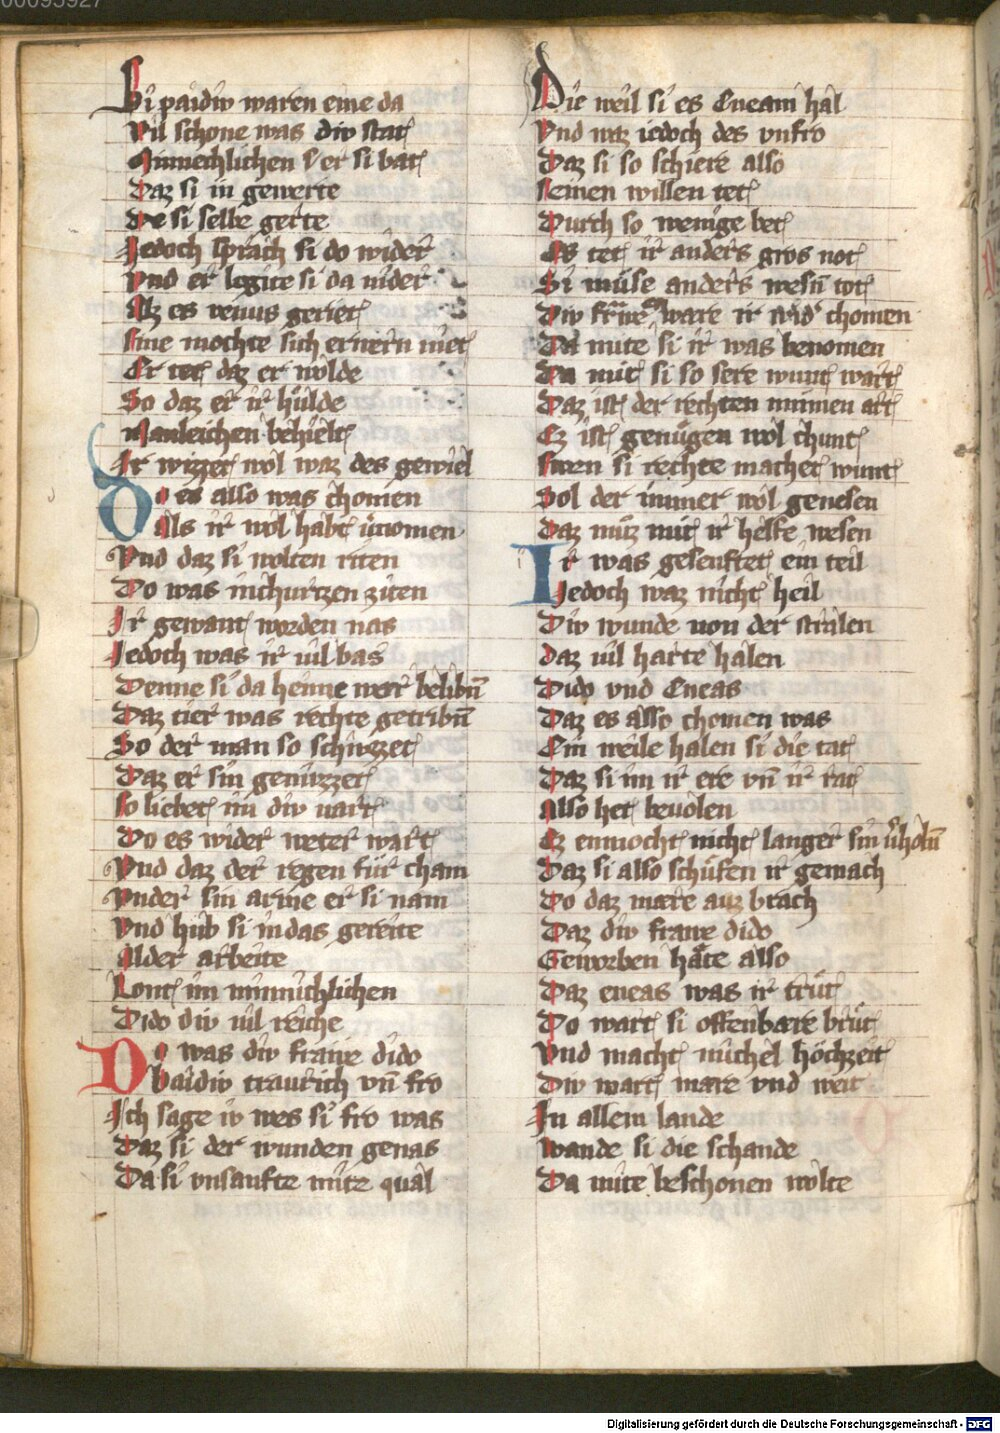 00095927
Si paidiv waren eine da
Vil schone was div stat
Minnechlichen er si bat
Daz si in gewerte
Des si selbe gerte
Jedoch sprach si do wider
Vnd er legite si da nider
Alz es venus geriet
Sine mochte sich ernern niet
Er tet daz er wolde
So daz er ir hulde
Manleichen behielt
Ir wizzet wol waz des gewiel
Do es also was chomen
Als ir wol habt vernomen
Vnd daz si wolten riten
Do was in churtzen ziten
Ir gewant worden nas
Jedoch was ir vil bas
Denne si da heime wer belibn̄
Daz tier was rechte getribn̄
So der man so schivzzet
Daz er sin genivzzet
so liebet im div vart
Do es wider weter wart
Vnd daz der regen für cham
Vnder sin arme er si nam
Vnd hub si in das gereite
Alder arbeite
Lont im minnichlichen
Dido div vil reiche
Do was div frawe dido
baidiv traurich vn̄ fro
Ich sage iv wes si fro was
Daz si der wunden genas
Da si vnsanfte mite qual
Die weil si es Eneam hal
Vnd waz iedoch des vnfro
Daz si so schiere also
seinen willen tet
Durch so wenige bet
Es tet ir anders gros not
Si müse anders wesn̄ tot
Div were ir nid chomen
Da mite si ir was benomen
Da mit si so sere wunt wart
Daz ist der rechten minnen art
Ez ist genügen wol chunt
swen si rechte machet wunt
Sol der immer wol genesen
Daz müz mit ir helfe wesen
Ir was gesenftet ein teil
Jedoch waz nicht heil
Div wunde von der stralen
daz vil harte halen
Dido vnd Eneas
Daz es also chomen was
Ein weile halen si die tat
Daz si im ir ere vn̄ ir rat
Also het bevolen
Ez enmocht nicht langer sin v͛holn̄
Daz si also schüfen ir gemach
Do daz mære auz brach
Daz div frawe dido
Geworben häte also
Daz eneas was ir trüt
Do wart si offenbære brüt
Vnd macht michel hochzeit
Div wart mare vnd weit
In allem lande
Wande si die schande
Da mite beschonen wolte
Digitalisierung gefördert durch die Deutsche Forschungsgemeinschaft - DFG